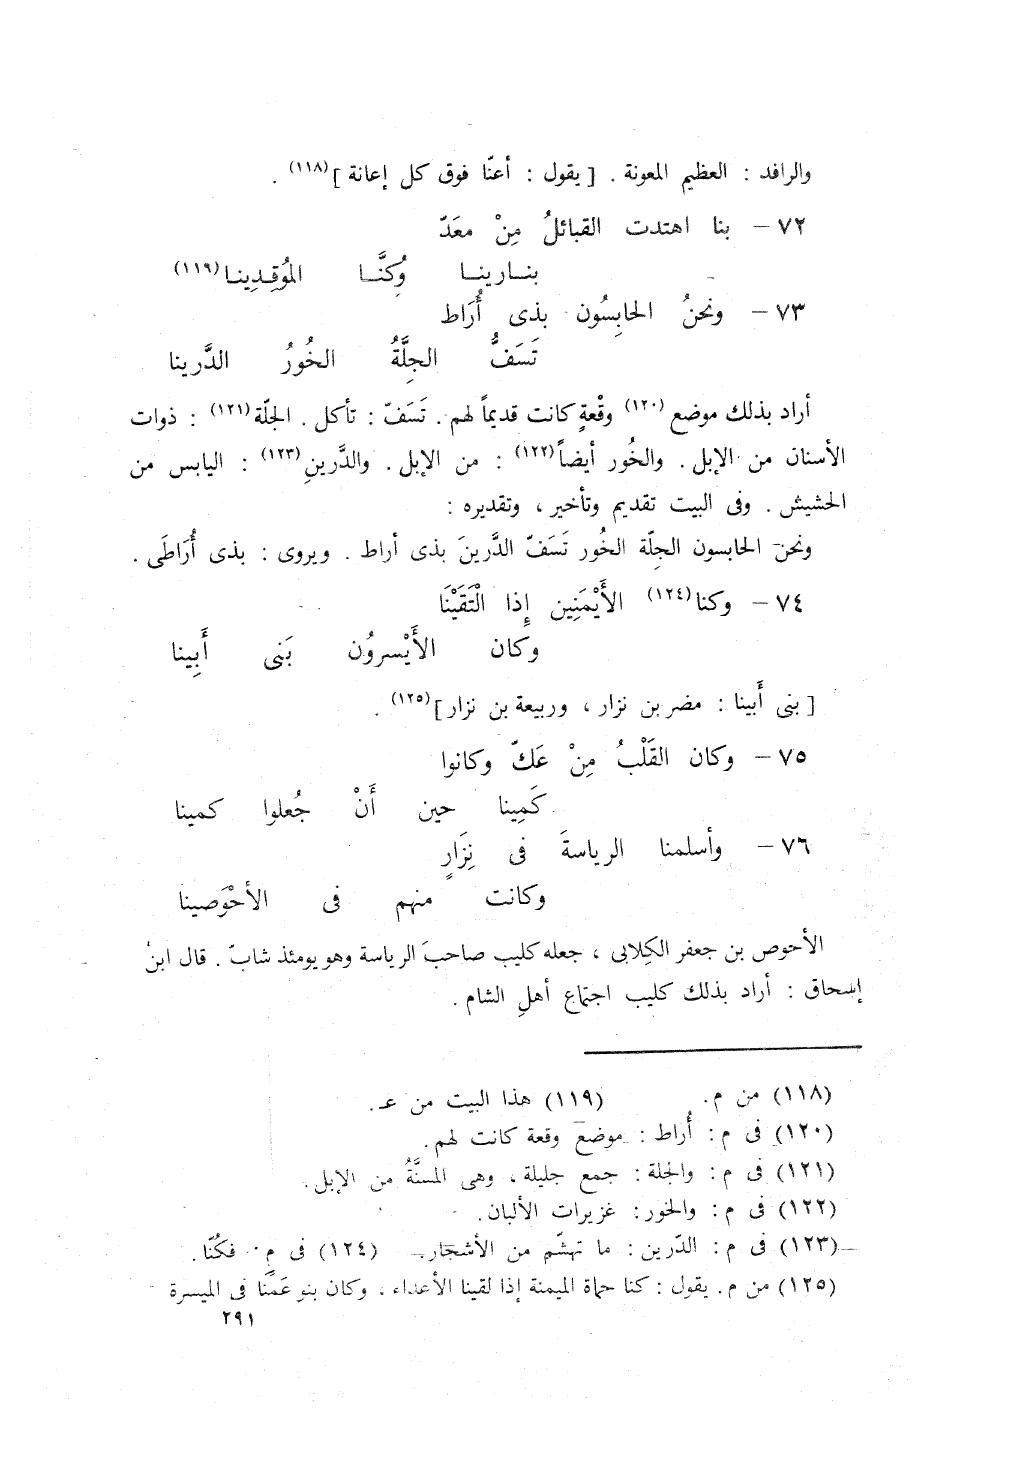 والرافد : العظيم المعونة . [ يقول : أعنّا فوق كل إعانة ](١١٨) .
٧٢ – بنا اهتدت القبائلُ مِنْ معَدّ
بنـارينـا وُكنَّـا المُوُقِـدِينـا(١١٩)
٧٣ – ونحنُ الحابِسُون بذى أُرَاط
تَسَفُّ الجِلَّةُ الخُورُ الدَّرينا
أراد بذلك موضع(١٢٠) وقْعةٍ كانت قديماً لهم . تَسَفّ : تأكل . الجلّة(١٢١) : ذوات
الأسنان من الإبل . والخُور أيضاً(١٢٢) : من الإبل . والدَّرينِ(١٢٣) : اليابس من
الحشيش . وفى البيت تقديم وتأخير ، وتقديره :
ونحن الحابسون الجِلّة الخُور تَسَفّ الدَّرينَ بذى أراط . ويروى : بذى أُرَاطَى .
٧٤ – وكنا(١٢٤) الأَيْمَنِين إِذا الْتَقَيْنَا
وكان الأَيْسروُن بَنى أَبِينا
[ بنى أَبينا : مضر بن نزار ، وربيعة بن نزار ](١٢٥) .
٧٥ – وكان القَلْبُ مِنْ عَكّ وكانوا
كَمِينا حين أَنْ جُعلوا كمينا
٧٦ – وأسلمنا الرياسةَ فى نِزَارٍ
وكانت منهم فى الأحْوَصينا
الأحوص بن جعفر الكِلابى ، جعله كليب صاحبَ الرياسة وهو يومئذ شابّ . قال ابنُ
إسحاق : أراد بذلك كليب اجتماع أهلِ الشام .
(١١٨) من م. (١١٩) هذا البيت من عـ .
(١٢٠) فى م : أُراط : موضع وقعة كانت لهم .
(١٢١) فى م : والجلة : جمع جليلة ، وهى المسنَّةُ من الإبل .
(١٢٢) فى م : والخور : غزيرات الألبان .
(١٢٣) فى م : الدّرين : ما تهشّم من الأشجار . (١٢٤) فى م . فكُنّا .
(١٢٥) من م . يقول : كنا حماة الميمنة إذا لقينا الأعداء ، وكان بنو عَمِّنا فى الميسرة
٢٩١